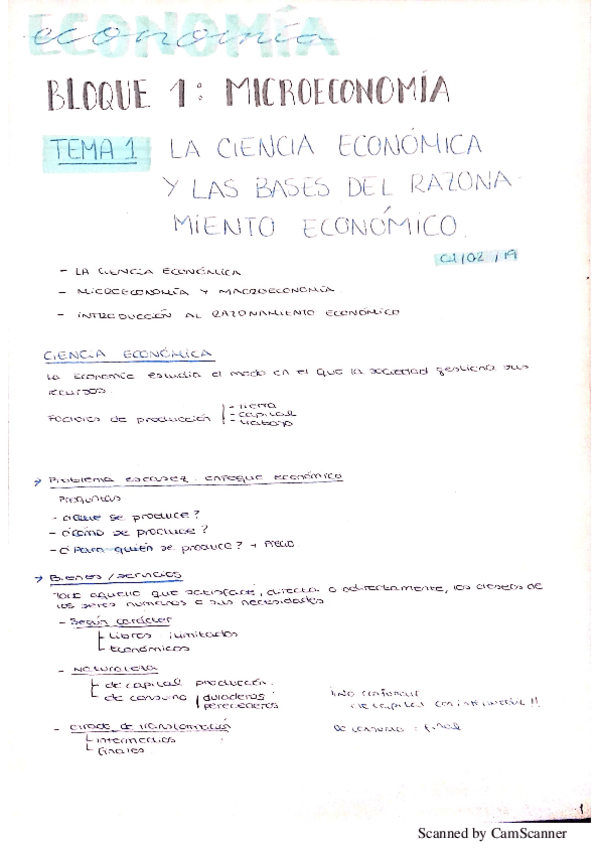 ECONOMÍA
economía
BLOQUE 1: MICROECONOMÍA
TEMA 1 LA CIENCIA ECONÓMICA
Y LAS BASES DEL RAZONA-
MIENTO ECONÓMICO.
01/02/19
- LA CIENCIA ECONÓMICA
- MICROECONOMÍA Y MACROECONOMÍA.
- INTRODUCCIÓN AL RAZONAMIENTO ECONÓMICO
CIENCIA ECONÓMICA
La Economía estudia el modo en el que la sociedad gestiona sus
recursos.
Factores de producción
- tierra
- capital
- trabajo
→ Problema escasez. enfoque económico
Preguntas
- ¿Que se produce?
- ¿Cómo se produce?
- ¿Para quién se produce? → Precio
→ Bienes / servicios
Todo aquello que satisface, directa o indirectamente, los deseos de
los seres humanos o sus necesidades
- Según carácter
Libres : ilimitados
Económicos
- Naturaleza
de capital producción.
de consumo
duraderos
perecederos
¡¡No confundir
de capital con intermedio!!
- Grado de transformación
Intermedios
finales
De consumo = final
1
Scanned by CamScanner